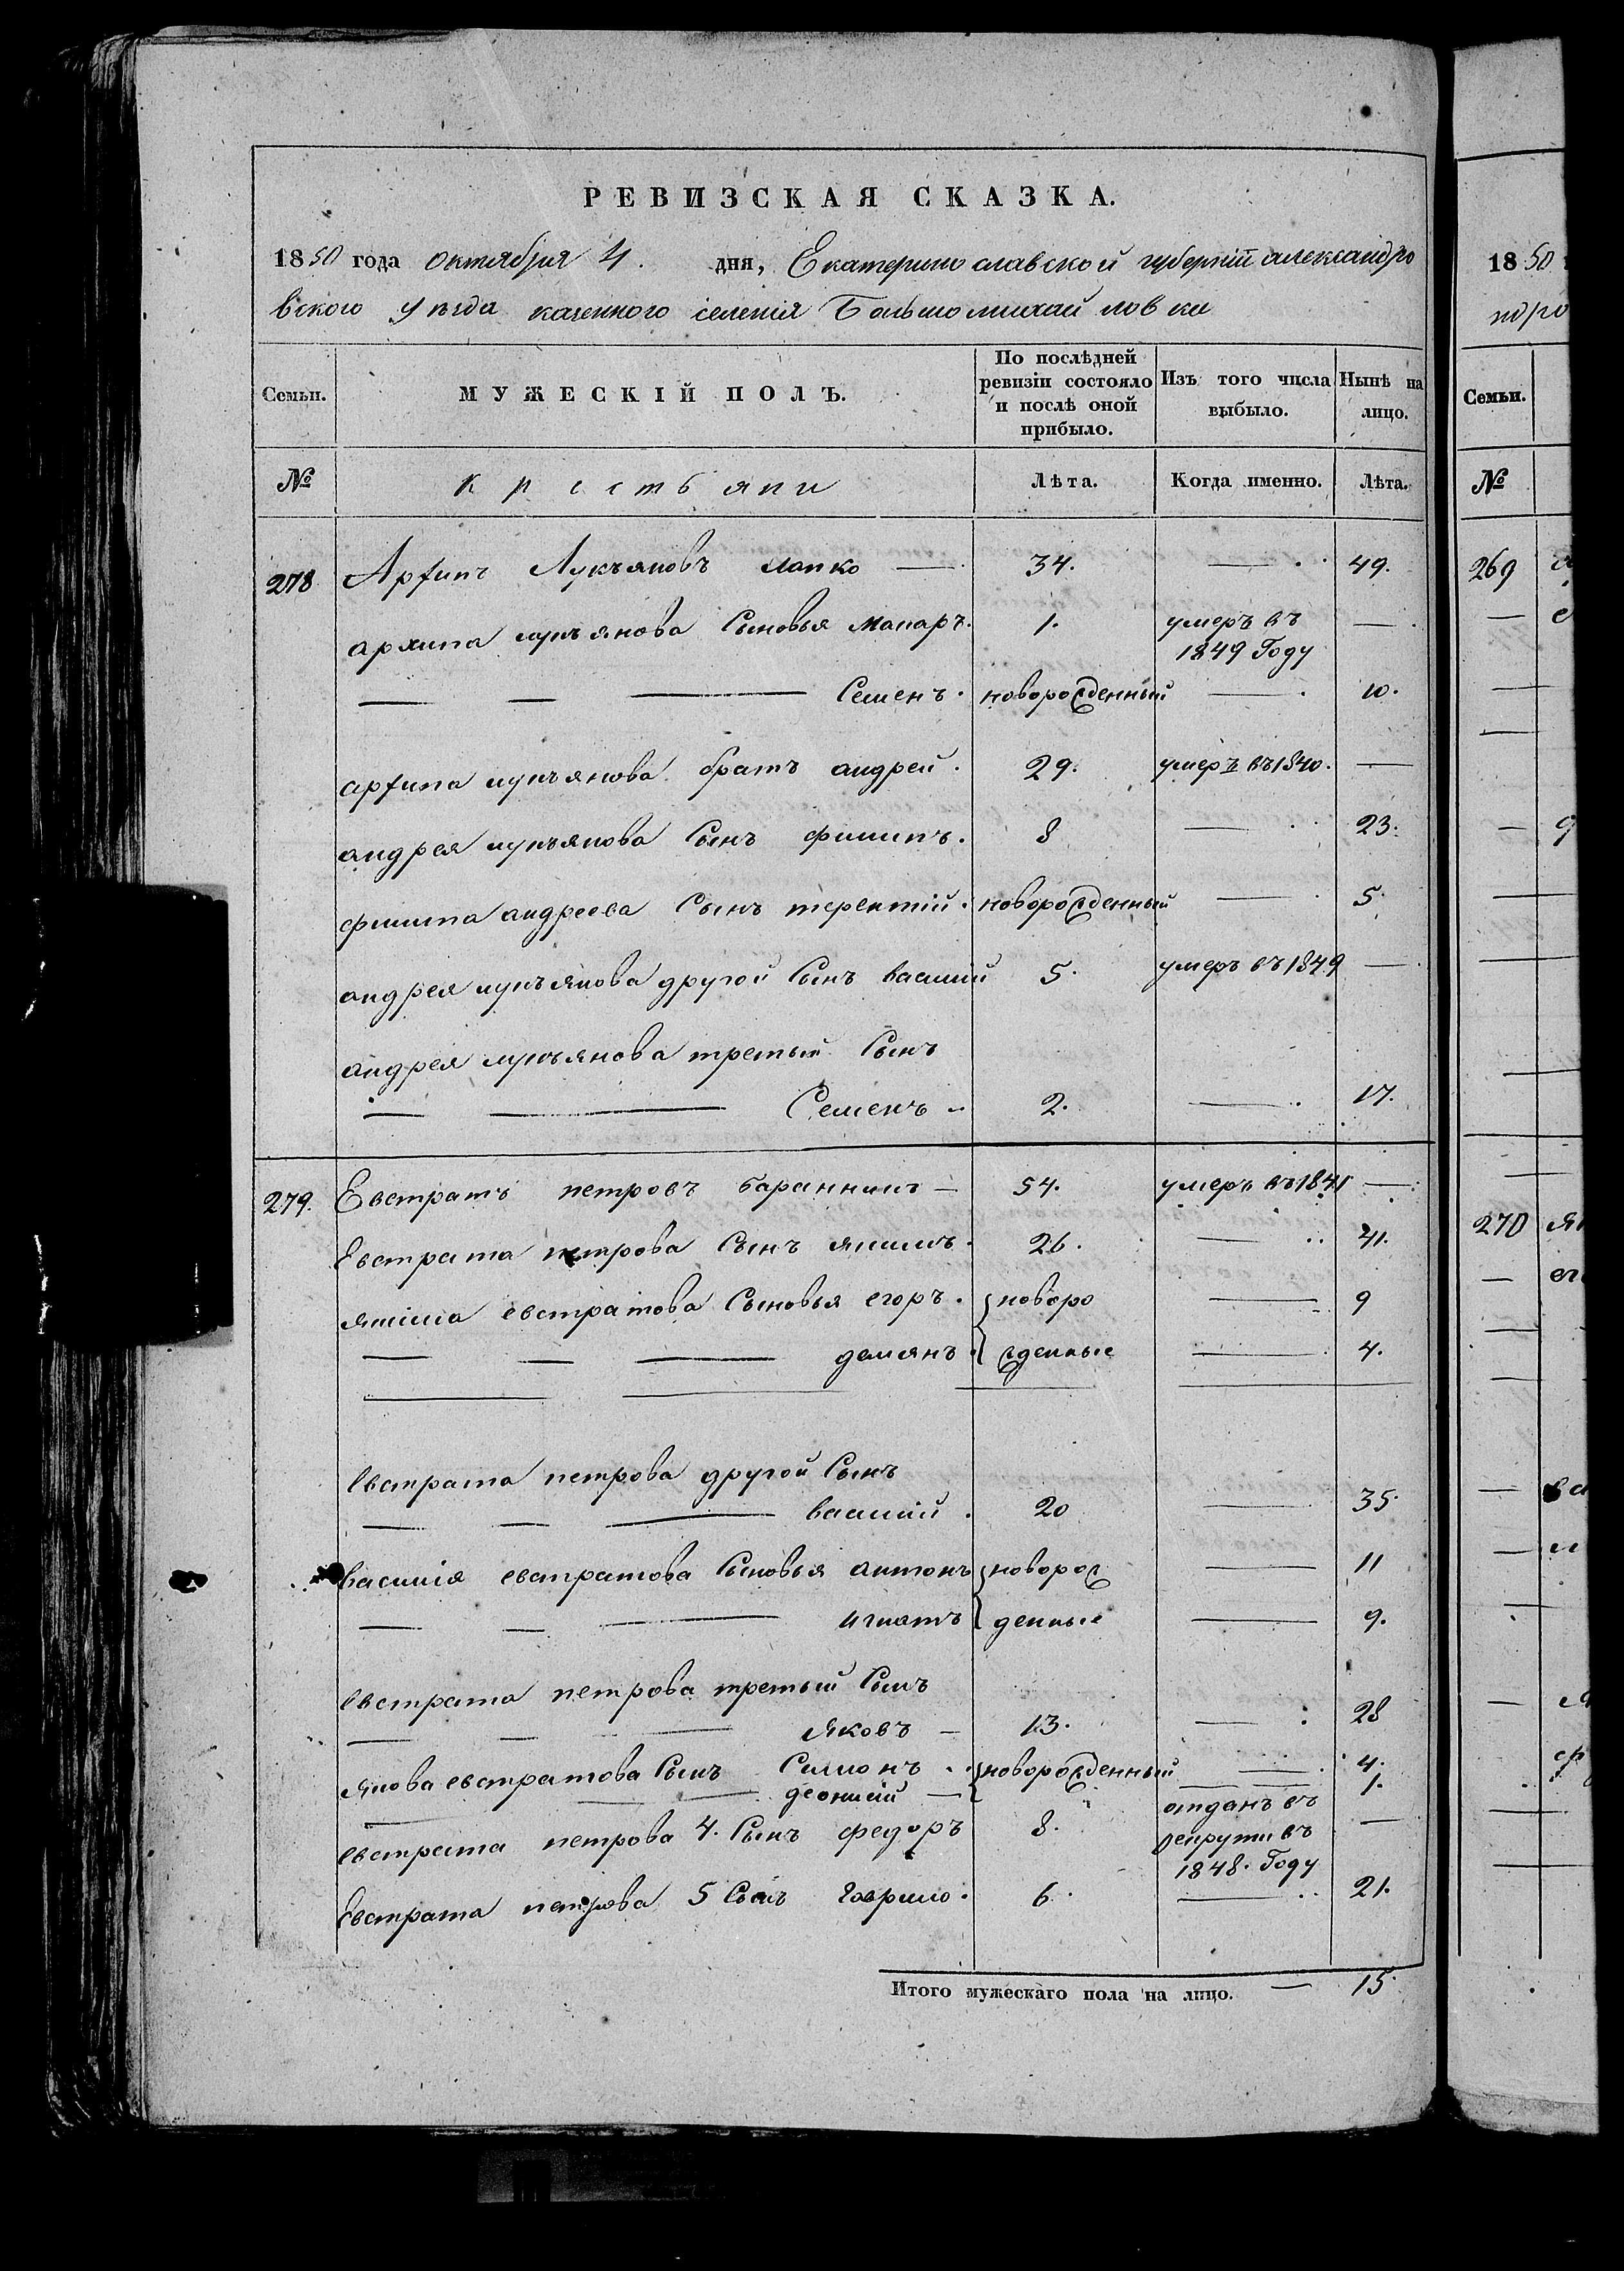 РЕВИЗСКАЯ СКАЗКА.
1850 года октября 4. дня, Екатеринославской губерніи александро
вского уезда казенного селенія Большомихайловки
Семьи. МУЖЕСКІЙ ПОЛЪ. По послѣдней ревизіи состояло и послѣ оной прибыло. Изъ того числа выбыло. Нынѣ на лицо.
№ крестьяни Лѣта. Когда именно. Лѣта.
278 Архипъ Лукъяновъ Лапко — 34. — 49.
архипа лукъянова Сыновья Макаръ. 1. умеръ въ 1849 Году —
— — — Семенъ. новорожденный — 10.
архипа лукъянова братъ андрей. 29. умеръ въ 1840. —
андрея лукъянова Сынъ филипъ. 8 — 23.
филипа андреева Сынъ терентій. новорожденный — 5.
андрея лукъянова другой Сынъ василий 5. умеръ въ 1849 —
андрея лукъянова третьи Сынъ
— — Семенъ 2. — 17.
279. Евстратъ петровъ — 54. умеръ въ 1841 —
Евстрата петрова Сынъ якимъ. 26. — 41.
якима евстратова Сыновья егоръ. новоро — 9
— — — демянъ. жденные — 4.
Евстрата петрова другой Сынъ
— — — василий. 20 — 35.
василия евстратова Сыновья антонъ новорож — 11
— — — игнатъ денные — 9.
евстрата петрова третьий Сынъ
— — — Яковъ — 13. — 28
якова евстратова Сынъ Симионъ новорожденный — 4.
— — — деонисий — — 1.
евстрата петрова 4. Сынъ федоръ 8. отданъ въ рекрути въ 1848. Году —
Евстрата петрова 5 Сынъ Гаврило. 6. — 21.
Итого мужескаго пола на лицо. — 15.
1850
Семьи.
№
269
270